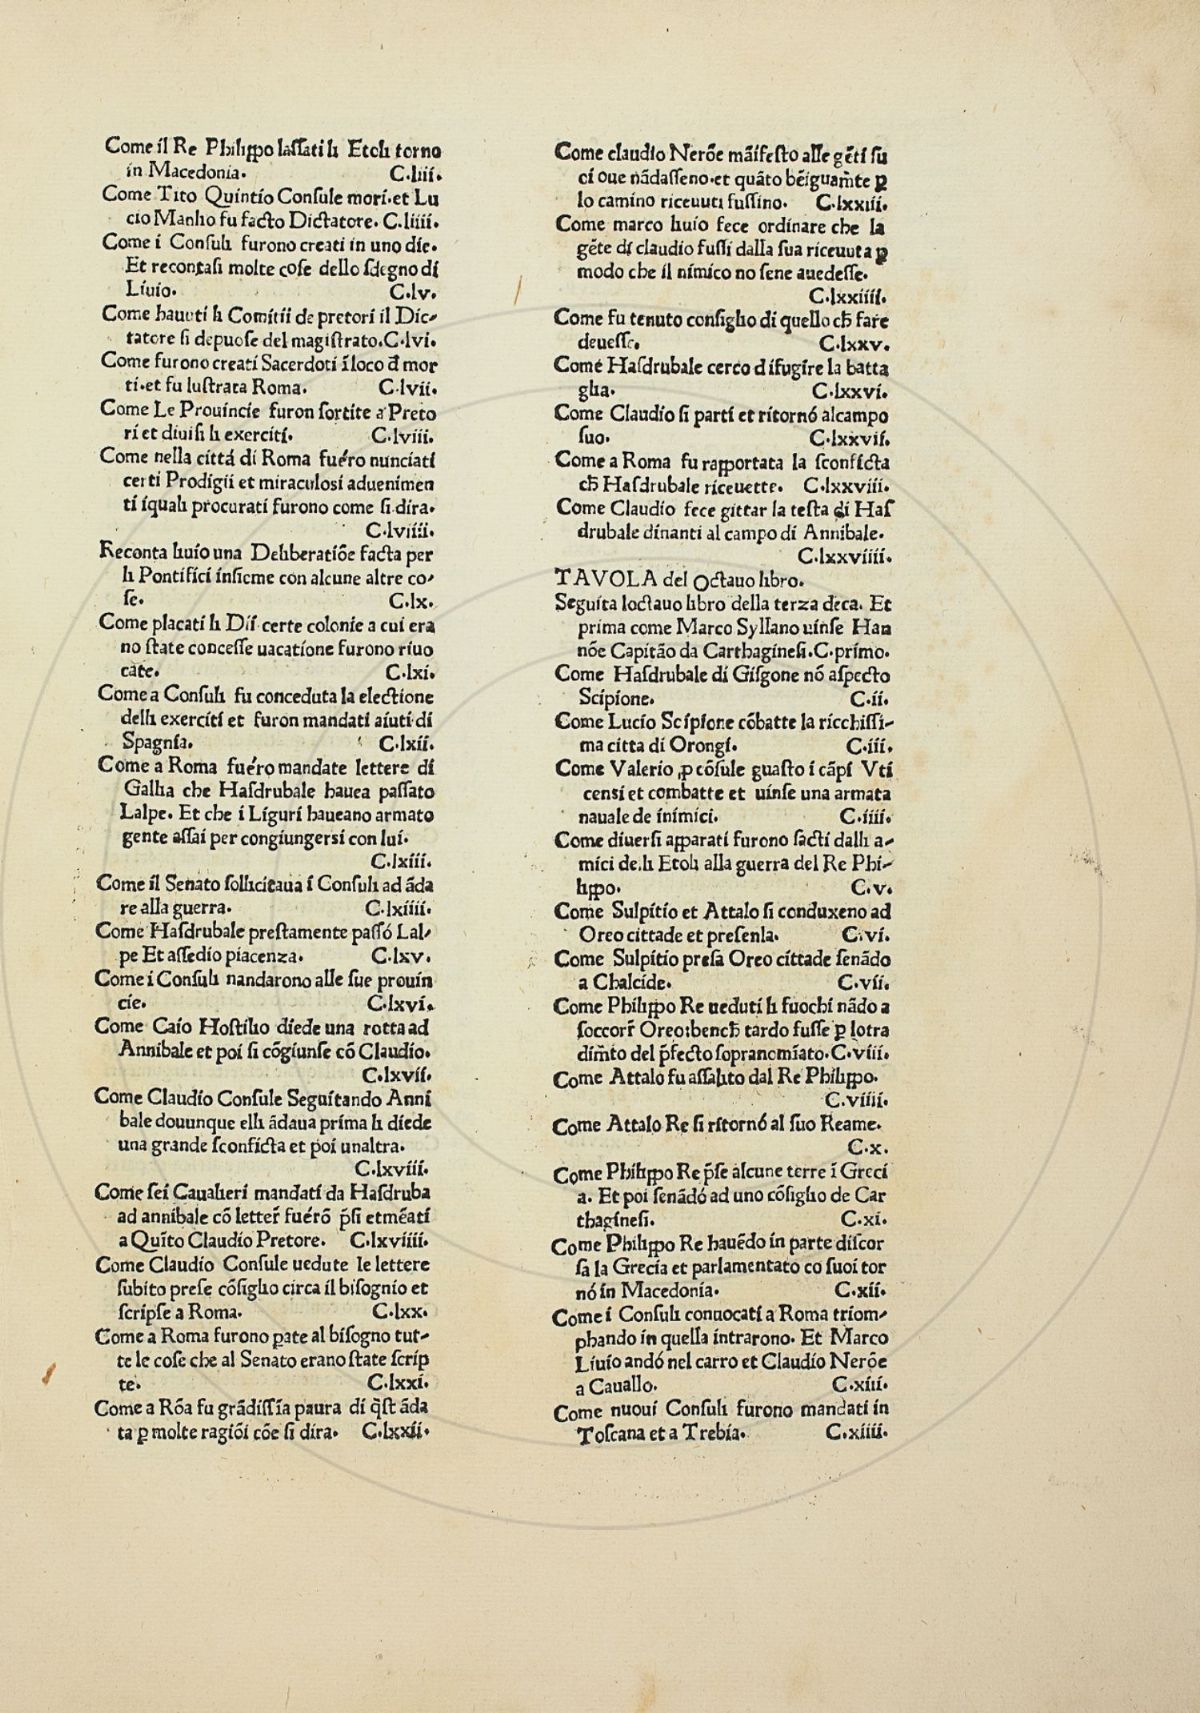 Come il Re Philippo lassati li Etoli torno
in Macedonia. C.liii.
Come Tito Quintio Consule mori.et Lu
cio Manlio fu facto Dictatore. C.liiii.
Come i Consuli furono creati in uno die.
Et recontasi molte cose dello sdegno di
Liuio. C.lv.
Come hauuti li Comitii de pretori il Dic-
tatore si depuose del magistrato.C.lvi.
Come furono creati Sacerdoti ĩ loco đ mor
ti.et fu lustrata Roma. C.lvii.
Come Le Prouincie furon sortite a Preto
ri et diuisi li exerciti. C.lviii.
Come nella cittá di Roma fuéro nunciati
certi Prodigii et miraculosi aduenimen
ti iquali procurati furono come si dira.
C.lviiii.
Reconta liuio una Deliberatiõe facta per
li Pontifici insieme con alcune altre co-
se. C.lx.
Come placati li Dii certe colonie a cui era
no state concesse uacatione furono riuo
cate. C.lxi.
Come a Consuli fu conceduta la electione
delli exerciti et furon mandati aiuti di
Spagnia. C.lxii.
Come a Roma fuéro mandate lettere di
Gallia che Hasdrubale hauea passato
Lalpe. Et che i Liguri haueano armato
gente assai per congiungersi con lui.
C.lxiii.
Come il Senato sollicitaua i Consuli ad ãda
re alla guerra. C.lxiiii.
Come Hasdrubale prestamente passó Lal-
pe Et assedio piacenza. C.lxv.
Come i Consuli nandarono alle sue prouin
cie. C.lxvi.
Come Caio Hostilio diede una rotta ad
Annibale et poi si cõgiunse cõ Claudio.
C.lxvii.
Come Claudio Consule Seguitando Anni
bale douunque elli ãdaua prima li diede
una grande sconficta et poi unaltra.
C.lxviii.
Come sei Caualieri mandati da Hasdruba
ad annibale cõ letter̃ fuérõ p̃si etmẽati
a Quĩto Claudio Pretore. C.lxviiii.
Come Claudio Consule uedute le lettere
subito prese cõsiglio circa il bisognio et
scripse a Roma. C.lxx.
Come a Roma furono pate al bisogno tut-
te le cose che al Senato erano state scrip
te. C.lxxi.
Come a Rõa fu grãdissĩa paura di q̃st ãda
ta ꝑ molte ragiõi cõe si dira. C.lxxii.
Come claudio Nerõe mãifesto alle gẽti su
ci oue nãdasseno.et quãto bẽiguam̃te ꝑ
lo camino riceuuti fussino. C.lxxiii.
Come marco liuio fece ordinare che la
gẽte di claudio fussi dalla sua riceuuta ꝑ
modo che il nimico no sene auedesse.
C.lxxiiii.
Come fu tenuto consiglio di quello cħ fare
deuesse. C.lxxv.
Come Hasdrubale cerco difugire la batta
glia. C.lxxvi.
Come Claudio si parti et ritornó alcampo
suo. C.lxxvii.
Come a Roma fu rapportata la sconficta
cħ Hasdrubale riceuette. C.lxxviii.
Come Claudio fece gittar la testa di Has
drubale dinanti al campo di Annibale.
C.lxxviiii.
TAVOLA del Octauo libro.
Seguita loctauo libro della terza deca. Et
prima come Marco Syllano uinse Han
nõe Capitão da Carthaginesi.C.primo.
Come Hasdrubale di Gisgone nõ aspecto
Scipione. C.ii.
Come Lucio Scipione cõbatte la ricchissi-
ma citta di Orongi. C.iii.
Come Valerio ꝓ cõsule guasto i cãpi Vti
censi et combatte et uinse una armata
nauale de inimici. C.iiii.
Come diuersi apparati furono facti dalli a-
mici de.li Etoli alla guerra del Re Phi-
lippo. C.v.
Come Sulpitio et Attalo si conduxeno ad
Oreo cittade et presenla. C.vi.
Come Sulpitio presa Oreo cittade senãdo
a Chalcide. C.vii.
Come Philippo Re ueduti li fuochi nãdo a
soccorr̃ Oreo:bencħ tardo fusse ꝑ lotra
dim̃to del p̃fecto sopranomĩato.C.viii.
Come Attalo fu assalito dal Re Philippo.
C.viiii.
Come Attalo Re si ritornó al suo Reame.
C.x.
Come Philippo Re p̃se alcune terre ĩ Greci
a. Et poi senãdó ad uno cõsiglio de Car
thaginesi. C.xi.
Come Philippo Re hauẽdo in parte discor
sa la Grecia et parlamentato co suoi tor
nó in Macedonia. C.xii.
Come i Consuli connocati a Roma triom-
phando in quella intrarono. Et Marco
Liuio andó nel carro et Claudio Nerõe
a Cauallo. C.xiii.
Come nuoui Consuli furono mandati in
Toscana et a Trebia. C.xiiii.